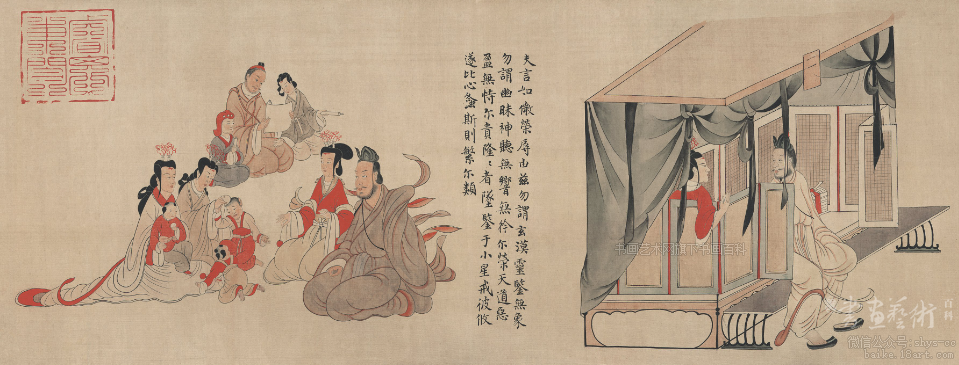 睿思東閣
夫言如微榮辱由茲勿謂玄漠靈鑒無象
勿謂幽昧神聽無響無矜尒榮天道惡
盈無恃尒貴隆〻者墜鑒于小星戒彼攸
遂比心螽斯則繁尒類
书画艺术网旗下书画百科
書畫藝術
百科
微信公众号:shys-cc
baike.18art.com